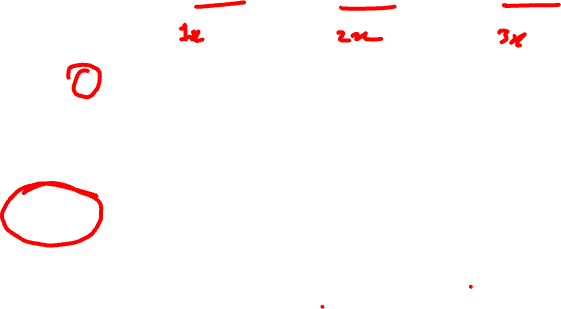 1x 2x 3x